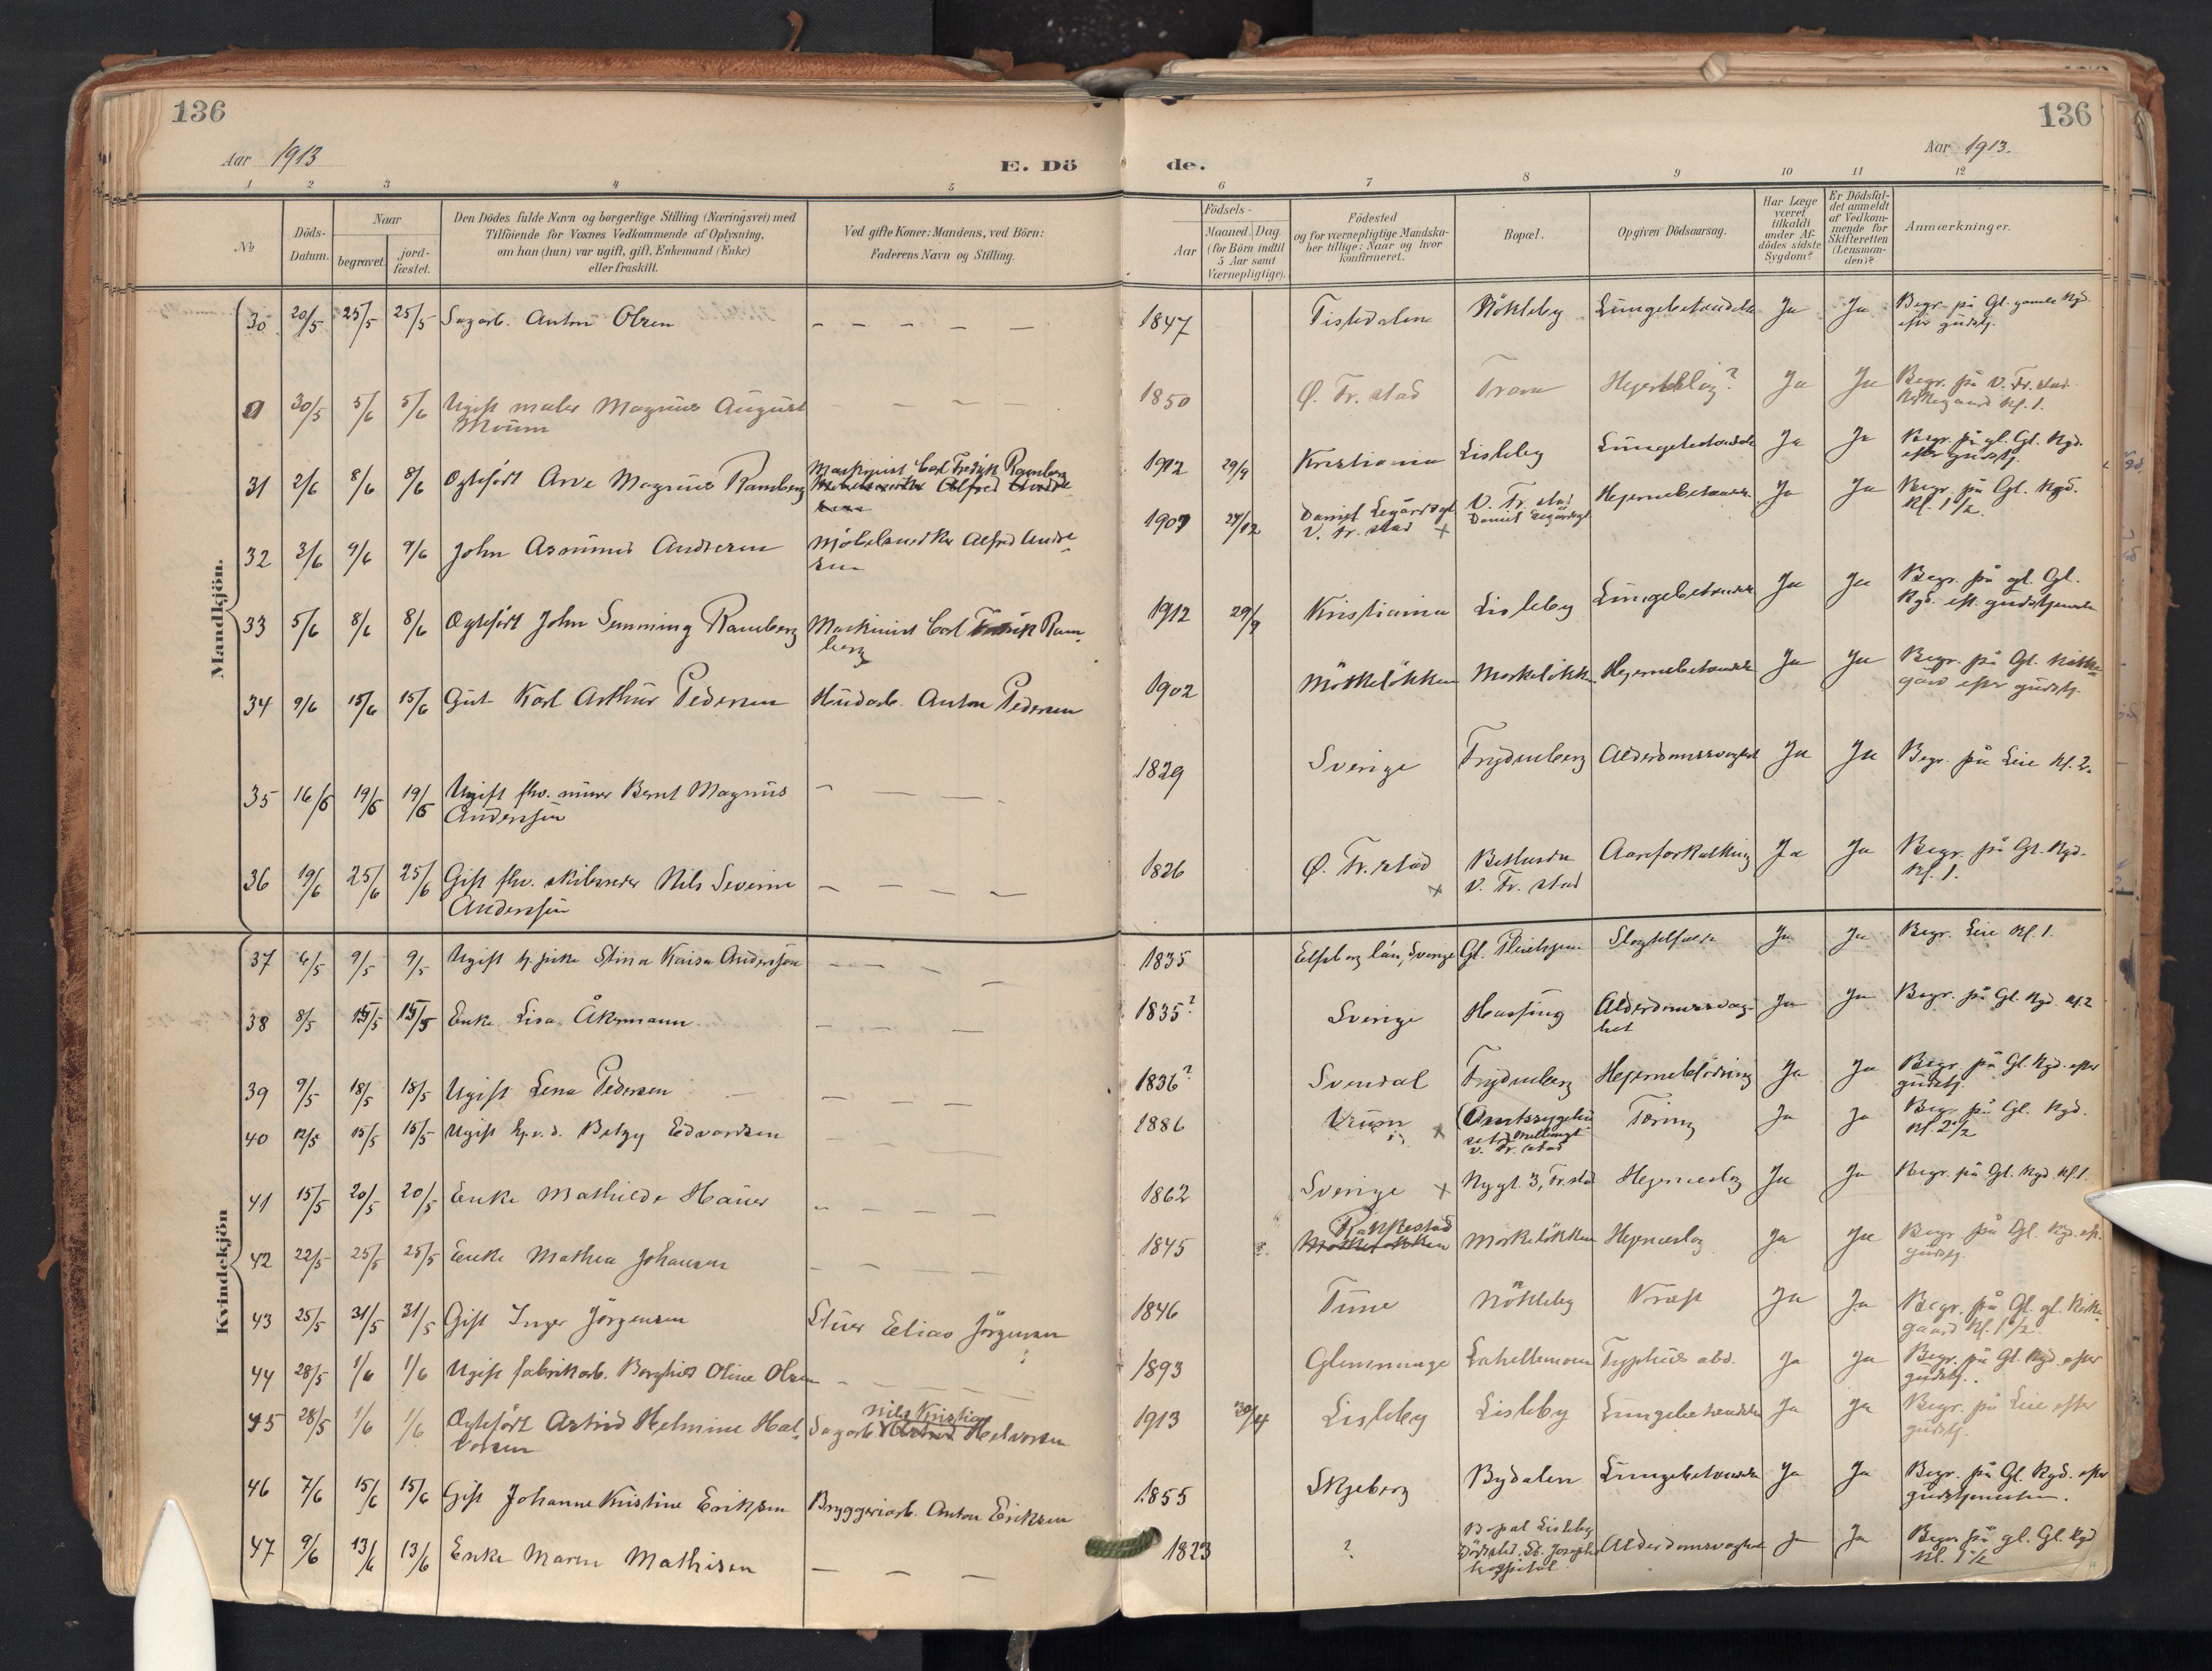 136
Aar 1913
E. Dö
1 2 3 4 5
№
Döds-
Datum.
Naar
begravet.
jord-
fæstet.
Den Dödes fulde Navn og borgerlige Stilling (Næringsvei) med
Tilföiende for Voxnes Vedkommende af Oplysning,
om han (hun) var ugift, gift, Enkemand (Enke)
eller fraskilt.
Ved gifte Koner: Mandens, ved Börn:
Faderens Navn og Stilling.
Mandkjön.
30 20/5 25/5 25/5 Sagarb. Anton Olsen — — — — —
30/5 5/6 5/6 Ugift maler Magnus August
Moum
31 2/6 8/6 8/6 Ogteført Arve Magnus Ramberg Maskinist Carl Fredrik Ramberg
32 3/6 9/6 9/6 John Asmund Andresen Möbelsnedker Alfred Andre
sen
33 5/6 8/6 8/6 Ogteført John Semming Ramberg Maskinist Carl Fredrik Ram-
berg
34 9/6 15/6 15/6 Gut Karl Arthur Pedersen Husarb. Anton Pedersen
35 16/6 19/6 19/6 Ugift fhv. murer Bernt Magnus
Anderssen
36 19/6 25/6 25/6 Gift fhv. skibsreder Nils Severin
Anderssen
Kvindekjön
37 6/5 9/5 9/5 Ugift tj. pike Stina Kaisa Andersson
38 8/5 15/5 15/5 Enke Lisa Åkermann
39 9/5 18/5 18/5 Ugift Lena Pedersen
40 12/5 15/5 15/5 Ugift Betzy Edvardsen
41 15/5 20/5 20/5 Enke Mathilde Hauer
42 22/5 25/5 25/5 Enke Mathea Johansen
43 25/5 31/5 31/5 Gift Inger Jörgensen Stuer Elias Jörgensen
44 28/5 1/6 1/6 Ugift fabrikarb. Borghild Oline Olsen
45 28/5 1/6 1/6 Ogteført Astrid Helmine Hal-
vorsen
Nils Kristian
Sagarb. Halvorsen
46 7/6 15/6 15/6 Gift Johanne Kristine Eriksen Bryggeriarb. Anton Eriksen
47 9/6 13/6 13/6 Enke Maren Mathisen — — —
136
de.
Aar 1913.
6 7 8 9 10 11 12
Födsels-
Aar
Maaned. Dag.
(for Börn indtil
5 Aar samt
Værnepligtige).
Födested
og for værnepligtige Mandska-
ber tillige: Naar og hvor
konfirmeret.
Bopæl.
Opgiven Dödsaarsag.
Har Læge
været
tilkaldt
under Af-
dödes sidste
Sygdom?
Er Dödsfal-
det anmeldt
af Vedkom-
mende for
Skifteretten
(Lensman-
den)?
Anmærkninger.
1847 Tistedalen Nökleby Lungebetændelse Ja Ja Begr. på Gl. gamle Kgd.
efter gudstj.
1850 Ø. Fr.stad Trara Hjerteslag? Ja Ja Begr. på V. Fr.stad
Kirkegaard Kl. 1.
1912 29/9 Kristiania Lisleby Lungebetændelse Ja Ja Begr. på gl. Gl. Kgd.
efter gudstj.
1907 27/12 Daniel Legårdsgt
V. Fr.stad x
V. Fr.stad
Daniel Legårdsgt
Hjernebetænd. Ja Ja Begr. på Gl. Kgd.
Kl. 1 1/2
1912 29/9 Kristiania Lisleby Lungebetændelse Ja Ja Begr. på gl. Gl.
Kgd. eft. gudstjenesten
1902 Mörkelökken Mörkelökken Hjernebetændelse Ja Ja Begr. på Gl. Kirke-
gård efter gudstj.
1829 Sverige Frydenberg Alderdomssvaghet Ja Ja Begr. på Leie Kl. 2.
1826 Ø. Fr.stad x
V. Fr.stad
Aareforkalkning Ja Ja Begr. på Gl. Kgd.
Kl. 1.
1835 Elfsborg län, Sverige Gl. Pleiehjem Ja Ja Begr. Leie Kl. 1.
1835? Sverige Hassing Alderdomssvag-
het
Ja Ja Begr. på Gl. Kgd. Kl. 2
1836? Svendal Frydenberg Hjerneblödning Ja Ja Begr. på Gl. Kgd. efter
gudstj.
1886 Urum x Amtssygehu-
set
V. Fr.stad
Tæring Ja Ja Begr. på Gl. Kgd.
Kl. 2 1/2
1862 Sverige x Nygt. 3, Fr.stad Hjerneslag Ja Ja Begr. på Gl. Kgd. Kl. 1.
Rakkestad
1845 Mörkelökken Mörkelökken Hjerneslag Ja Ja Begr. på Gl. Kgd. eft.
gudstj.
1846 Tune Nökleby Kræft Ja Ja Begr. på Gl. gl. Kirke-
gaard Kl. 1 1/2.
1893 Glemminge Lahellemoen Typhus abd. Ja Ja Begr. på Gl. Kgd. efter
gudstj.
1913 30/4 Lisleby Lisleby Lungebetændelse Ja Ja Begr. på Leie efter
gudstj.
1855 Skjeberg Bydalen Lungebetændelse Ja Ja Begr. på Gl. Kgd. efter
gudstjenesten.
1823 ? Bopæl Lisleby
Dödssted: St. Josephs
hospital
Alderdomssvaghet Ja Ja Begr. på gl. Gl. Kgd
Kl. 1 1/2